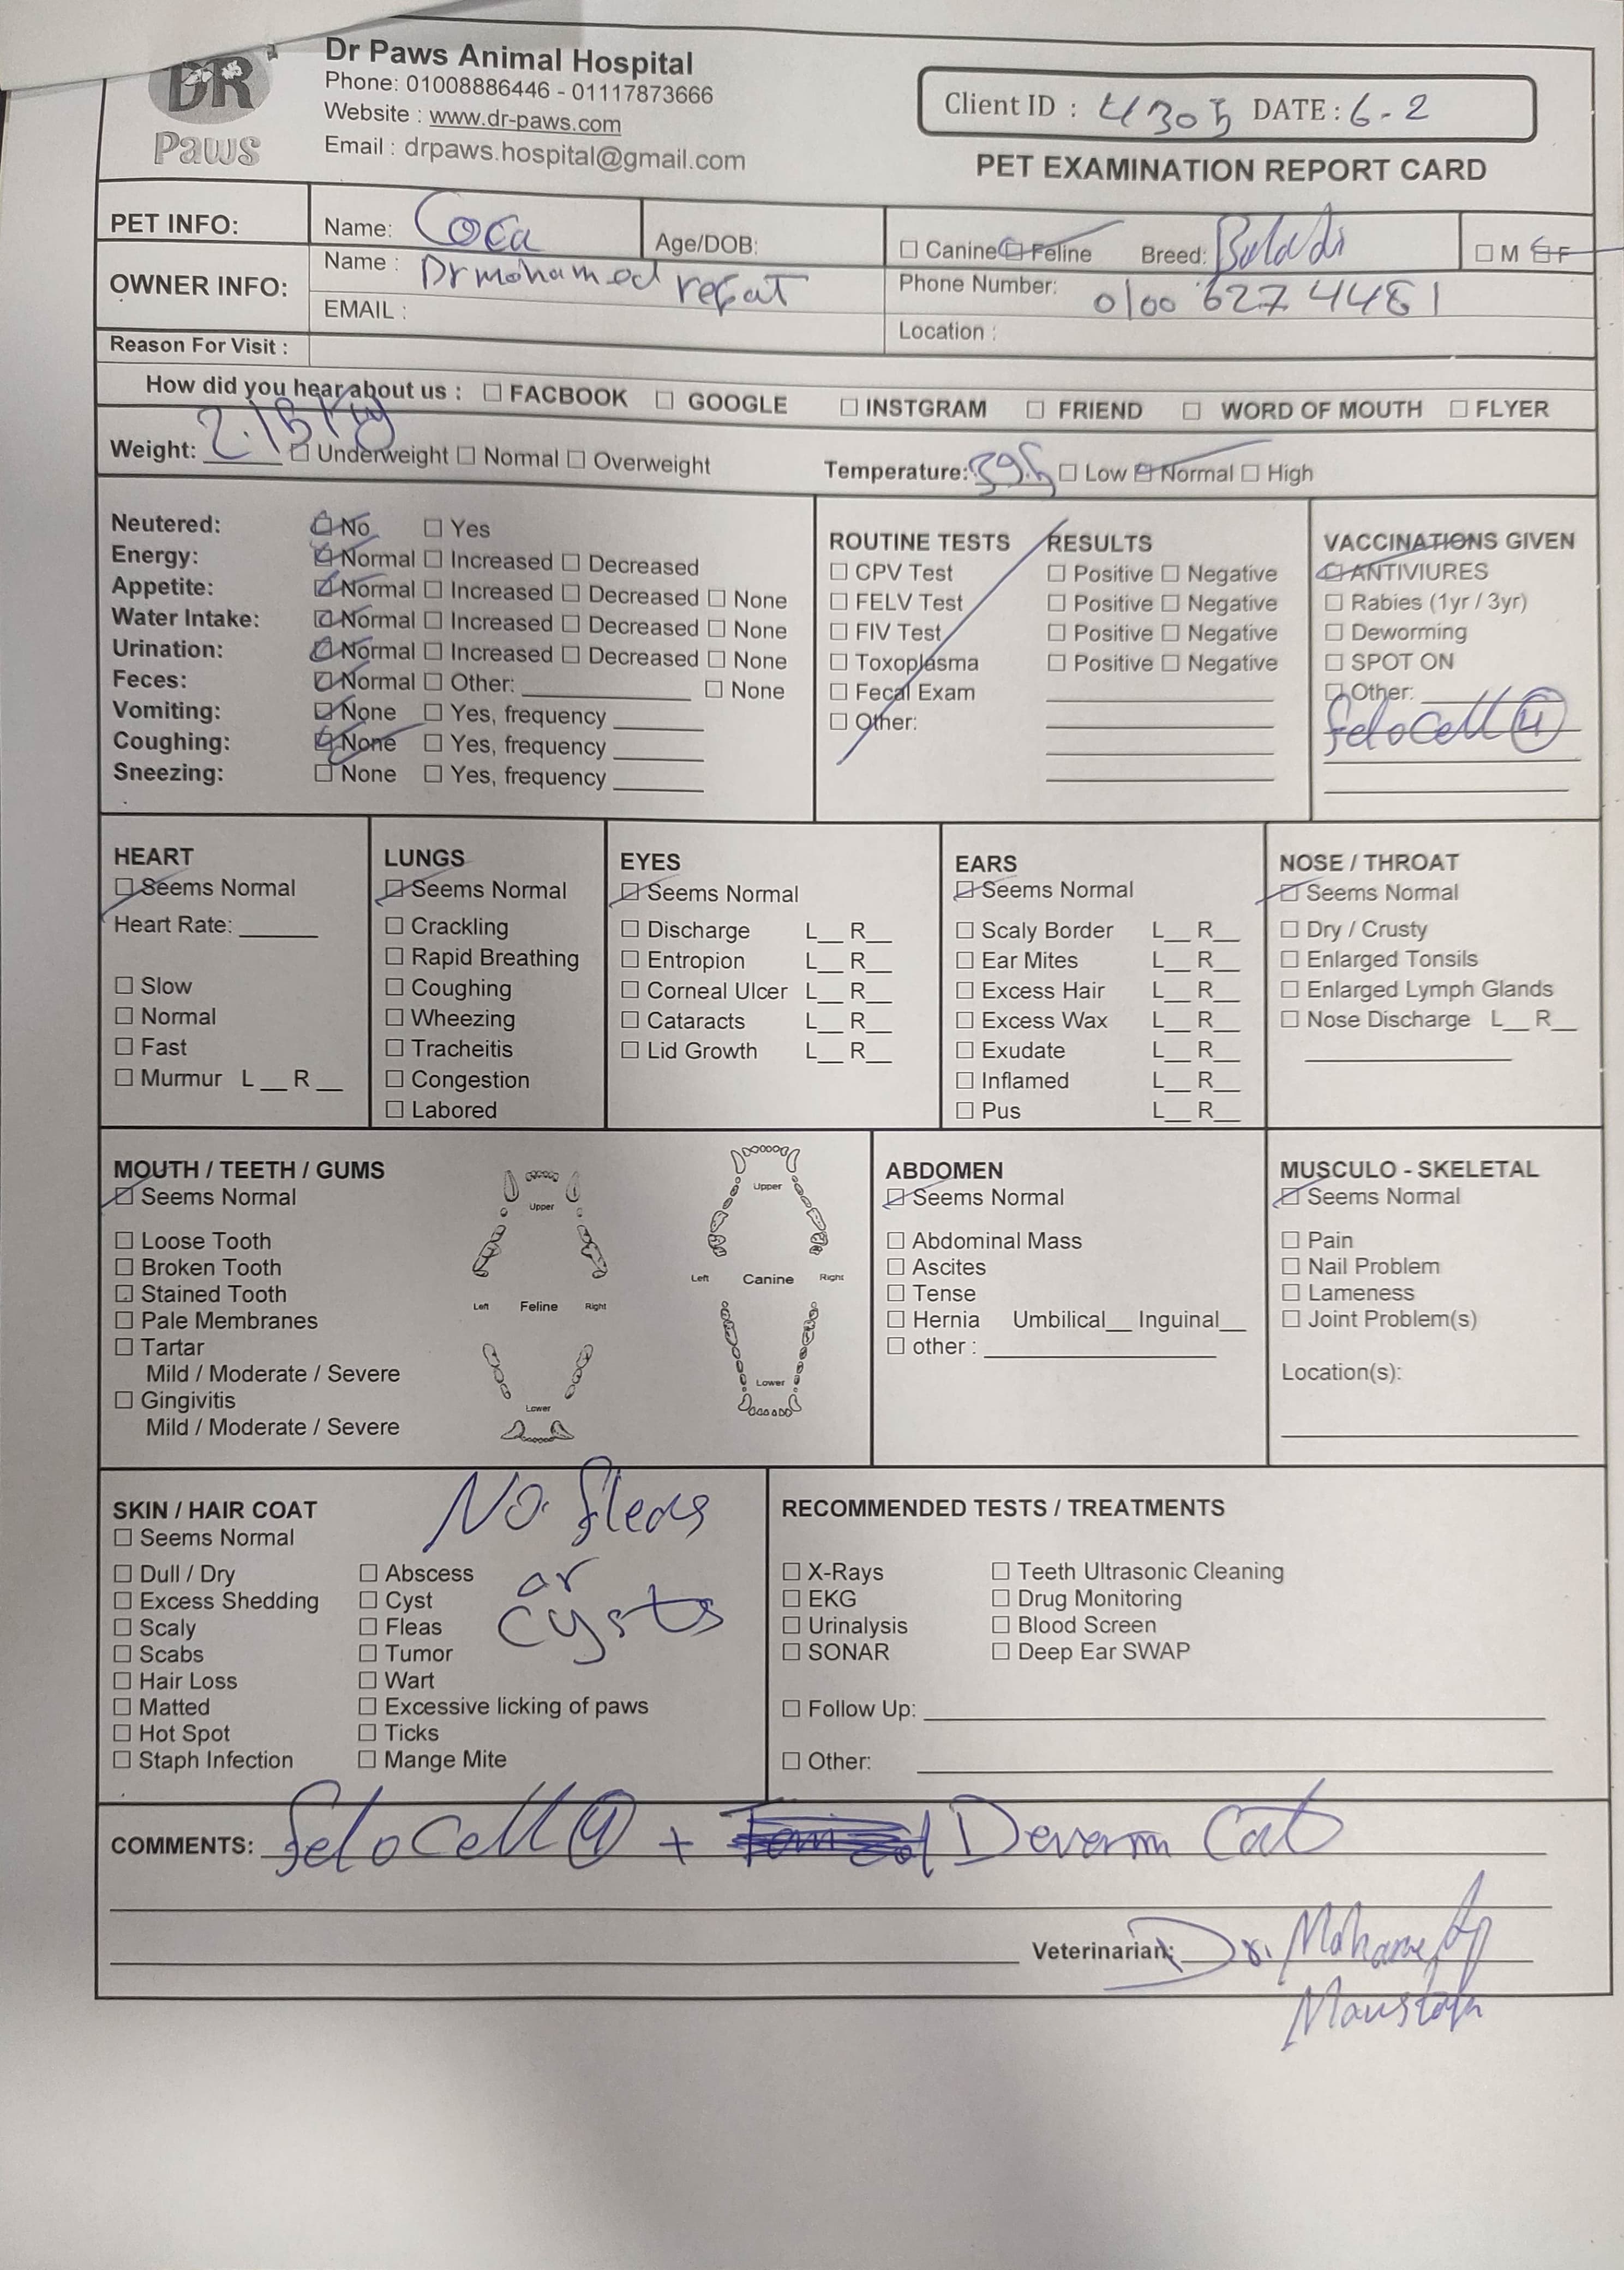 DR
Paws
Dr Paws Animal Hospital
Phone: 01008886446 - 01117873666
Website : www.dr-paws.com
Email : drpaws.hospital@gmail.com
Client ID : 4305 DATE : 6-2
PET EXAMINATION REPORT CARD
PET INFO: Name: Coca Age/DOB: ☐ Canine ☑ Feline Breed: Baladi ☐ M ☑ F
OWNER INFO: Name : Dr mohamed refat Phone Number: 0100 6274481
EMAIL : Location :
Reason For Visit :
How did you hear about us : ☐ FACBOOK ☐ GOOGLE ☐ INSTGRAM ☐ FRIEND ☐ WORD OF MOUTH ☐ FLYER
Weight: 2.15 Kg ☐ Underweight ☐ Normal ☐ Overweight Temperature: 39.5 ☐ Low ☑ Normal ☐ High
Neutered: ☑ No ☐ Yes
Energy: ☑ Normal ☐ Increased ☐ Decreased
Appetite: ☑ Normal ☐ Increased ☐ Decreased ☐ None
Water Intake: ☑ Normal ☐ Increased ☐ Decreased ☐ None
Urination: ☑ Normal ☐ Increased ☐ Decreased ☐ None
Feces: ☑ Normal ☐ Other: ☐ None
Vomiting: ☑ None ☐ Yes, frequency
Coughing: ☑ None ☐ Yes, frequency
Sneezing: ☐ None ☐ Yes, frequency
ROUTINE TESTS RESULTS
☐ CPV Test ☐ Positive ☐ Negative
☐ FELV Test ☐ Positive ☐ Negative
☐ FIV Test ☐ Positive ☐ Negative
☐ Toxoplasma ☐ Positive ☐ Negative
☐ Fecal Exam
☐ Other:
VACCINATIONS GIVEN
☑ ANTIVIURES
☐ Rabies (1yr / 3yr)
☐ Deworming
☐ SPOT ON
☐ Other:
felocell 4
HEART
☑ Seems Normal
Heart Rate:
☐ Slow
☐ Normal
☐ Fast
☐ Murmur L__ R__
LUNGS
☑ Seems Normal
☐ Crackling
☐ Rapid Breathing
☐ Coughing
☐ Wheezing
☐ Tracheitis
☐ Congestion
☐ Labored
EYES
☑ Seems Normal
☐ Discharge L__ R__
☐ Entropion L__ R__
☐ Corneal Ulcer L__ R__
☐ Cataracts L__ R__
☐ Lid Growth L__ R__
EARS
☑ Seems Normal
☐ Scaly Border L__ R__
☐ Ear Mites L__ R__
☐ Excess Hair L__ R__
☐ Excess Wax L__ R__
☐ Exudate L__ R__
☐ Inflamed L__ R__
☐ Pus L__ R__
NOSE / THROAT
☑ Seems Normal
☐ Dry / Crusty
☐ Enlarged Tonsils
☐ Enlarged Lymph Glands
☐ Nose Discharge L__ R__
MOUTH / TEETH / GUMS
☑ Seems Normal
☐ Loose Tooth
☐ Broken Tooth
☐ Stained Tooth
☐ Pale Membranes
☐ Tartar
Mild / Moderate / Severe
☐ Gingivitis
Mild / Moderate / Severe
Upper
Left Feline Right
Lower
Upper
Left Canine Right
Lower
ABDOMEN
☑ Seems Normal
☐ Abdominal Mass
☐ Ascites
☐ Tense
☐ Hernia Umbilical__ Inguinal__
☐ other :
MUSCULO - SKELETAL
☑ Seems Normal
☐ Pain
☐ Nail Problem
☐ Lameness
☐ Joint Problem(s)
Location(s):
SKIN / HAIR COAT
☐ Seems Normal
☐ Dull / Dry ☐ Abscess
☐ Excess Shedding ☐ Cyst
☐ Scaly ☐ Fleas
☐ Scabs ☐ Tumor
☐ Hair Loss ☐ Wart
☐ Matted ☐ Excessive licking of paws
☐ Hot Spot ☐ Ticks
☐ Staph Infection ☐ Mange Mite
No fleas
or
cysts
RECOMMENDED TESTS / TREATMENTS
☐ X-Rays ☐ Teeth Ultrasonic Cleaning
☐ EKG ☐ Drug Monitoring
☐ Urinalysis ☐ Blood Screen
☐ SONAR ☐ Deep Ear SWAP
☐ Follow Up:
☐ Other:
COMMENTS: felocell 4 + Deverm Cat
Veterinarian: Dr. Mohamed
Moustafa